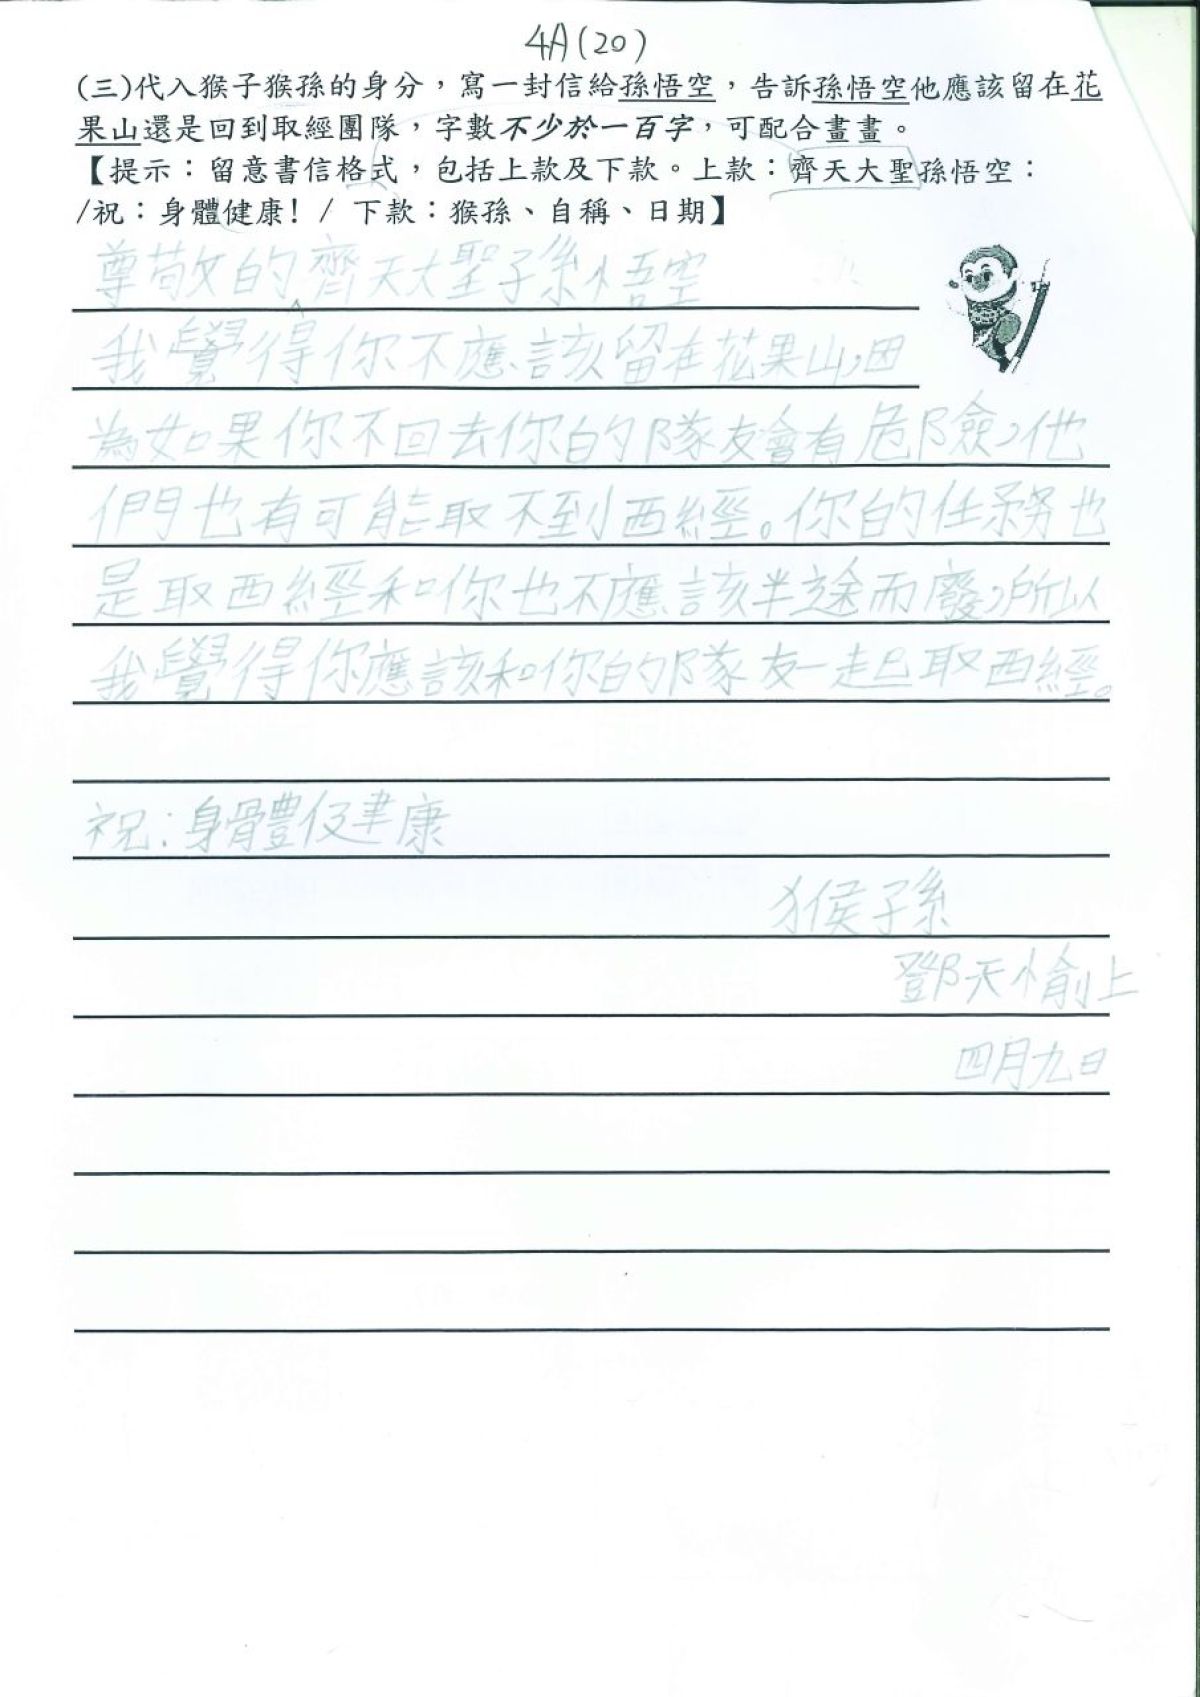 4A(20)
(三)代入猴子猴孫的身分，寫一封信給孫悟空，告訴孫悟空他應該留在花
果山還是回到取經團隊，字數不少於一百字，可配合畫畫。
【提示：留意書信格式，包括上款及下款。上款：齊天大聖孫悟空：
/祝：身體健康! / 下款：猴孫、自稱、日期】
尊敬的齊天大聖孫悟空
我覺得你不應該留在花果山，因
為如果你不回去你的隊友會有危險，他
們也有可能取不到西經。你的任務也
是取西經和你也不應該半途而廢，所以
我覺得你應該和你的隊友一起取西經。
祝：身體健康
猴孫
鄧天愉上
四月九日